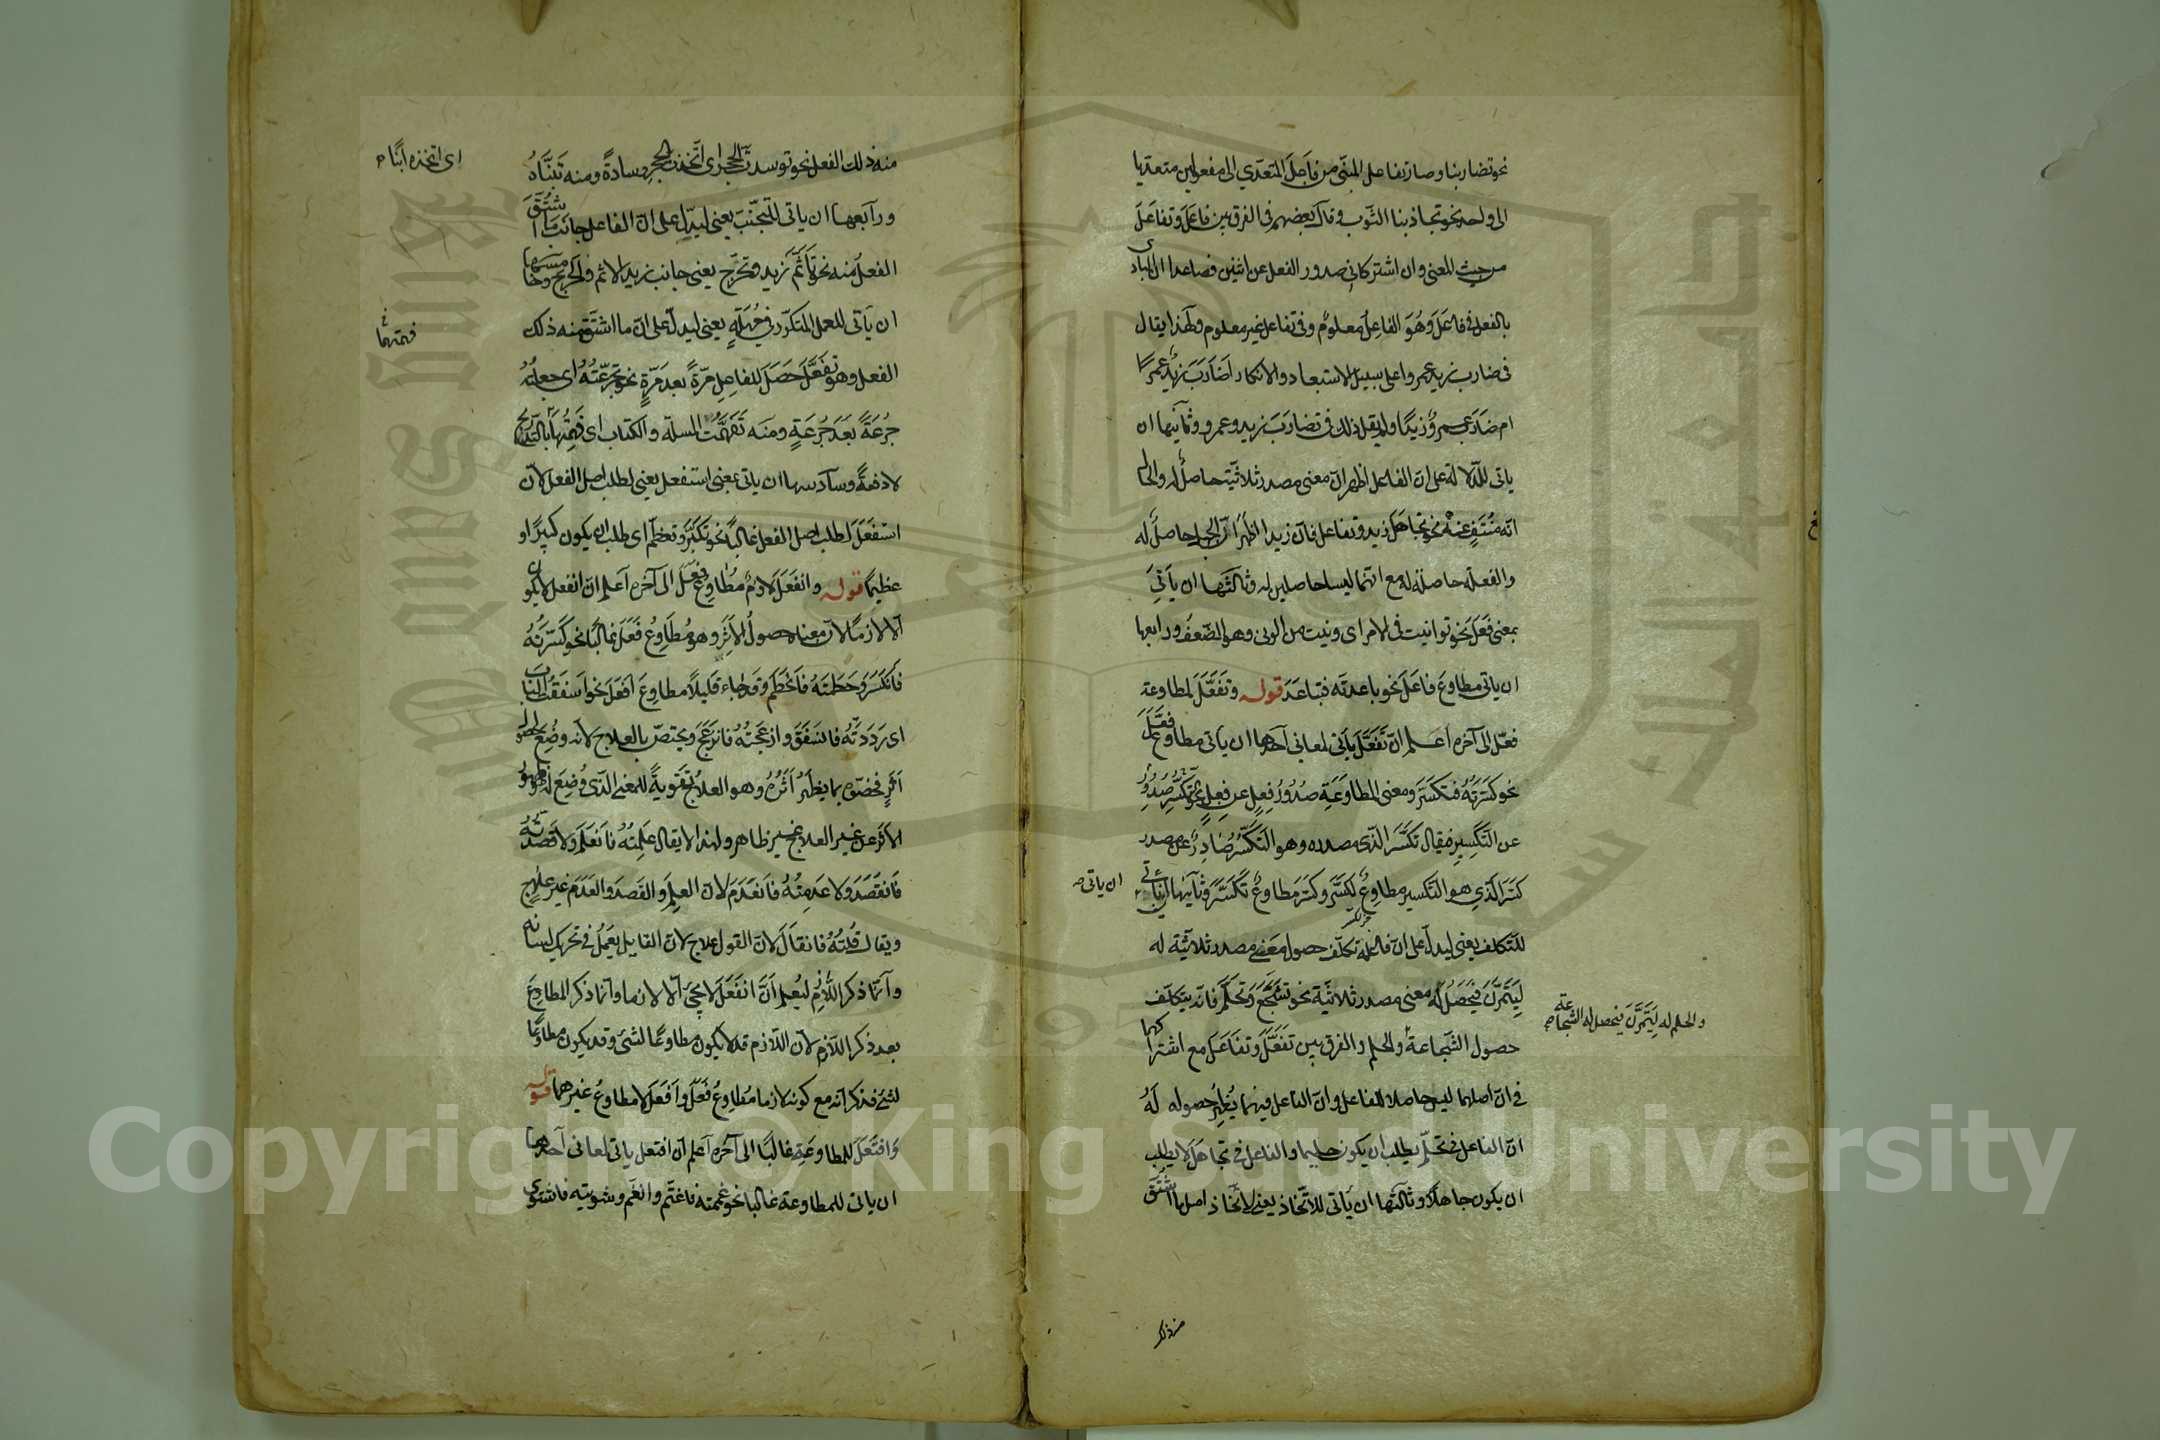 نحو تضاربنا وصار تفاعل المبنى من فاعل المتعدي الى مفعولين متعديا
الى واحد نحو تجاذبنا الثوب وقال بعضهم فى الفرق بين فاعَلَ وتفاعَلَ
من حيث المعنى وان اشتركا فى صدور الفعل عن اثنين فصاعدا ان البادى
بالفعل فى فاعَلَ وَهُوَ الفاعِلُ معلومٌ وفى تفاعل غير معلوم ولهذا يقال
فى ضارب زيد عمروا على سبيل الاستبعاد والانكار اضَارَبَ زيدٌ عمرًا
ام ضارَب عمروٌ زيدًا ولم يقل ذلك فى تضارَبَ زيد وعمرو وثانيها ان
ياتى للدّلالة على ان الفاعل اظهر انّ معنى مصدر ثلاثيّه حاصلٌ له والحال
انّه مُنتَفٍ عنهُ نحو تجاهَلَ زيد وتغافل فانّ زيدا اظهر انّ الجهل حاصلٌ له
والغفلة حاصلة له مع انّهما ليسا حاصلين له وثالثها ان ياتىَ
بمعنى فَعَلَ نحو توانيت فى الامر اى ونيت من الونى وهو الضّعف ورابعها
ان ياتى مطاوعَ فاعَلَ نحو باعدته فتباعَدَ قوله وتَفَعَّلَ لمطاوعة
فعّل الى آخره اعلم انّ تَفَعَّلَ ياتى لمعانى احدها ان ياتى مطاوع فعَّلَ
نحو كسّرتُهُ فتكسّرَ ومعنى المطاوَعَةِ صُدُورُ فِعلٍ عن فِعلٍ نحو تكسّر صُدُورُ
عن التّكسِيرِ فيقال تكَسَّرَ الذى مصدره وهو التّكسُّرُ صَادِرٌ عن مصدر
كسّرَ الّذى هو التّكسير مطاوِعٌ لِكسَّرَ وكسَّرَ مطاوعُ تَكَسَّرَ وثانيها ان ياتى
ان ياتى صح
للتّكلف يعنى ليدلّ على انّ فاعله تكلّف حصول معنى مصدر ثلاثيّه له
لِيَتَمَرَّنَ فيَحصُلُ له معنى مصدر ثلاثيّه نحو تَشَجَّعَ وَتَحلَّمَ فانّه يتكلّف
والحلم له لِيَتَمَرَّنَ فيحصل له الشجاعة صح
حصول الشّجاعة والحلم والفرق بين تَفَعَّلَ وَتَفَاعَلَ مع اشتراكهما
فى انّ اصلهما ليس حاصلا للفاعل وانّ الفاعل فيهما يُظهِرُ حصوله لَهُ
انّ الفاعل فى تحلّم يطلب ان يكون حليما والفاعل فى تجاهَلَ لا يطلب
ان يكون جاهلًا وثالثها ان ياتى للاتّخاذ يعنى لاتّخاذ اصل ما اشتُقَّ
منه ذلك
منه ذلك الفعل نحو توسدتُ الحجر اى اتّخذت الحجر وسادةً ومنه تَبَنَّاهُ
اى اتخذه ابنًا صح
ورابعها ان ياتى للتجنّب يعنى ليدلّ على انّ الفاعل جانَبَ ما اشتُقَّ
الفعل منه نحو تاثّم زيد وتحرّج يعنى جانب زيد الاثم والحرج وخامسها
ان ياتى للعمل المتكرّر فى مُهلَةٍ يعنى ليدلّ على انّ ما اشتُقّ منه ذلك
ففهمتها
الفعل وهو تفعَّلَ حَصَلَ للفاعل مرّةً بعد مَرّةٍ نحو تجرّعتُهُ اى جعلتُهُ
جُرعَةً بَعدَ جُرعَةٍ ومنه تَفَهَّمتُ المسئلة والكتاب اى فهمتُها بالتّدريج
لا دفعةً وسادسها ان ياتى بمعنى استفعل يعنى لطلب اصل الفعل لانّ
استفعَلَ لطلب اصل الفعل غالبًا نحو تكَبَّرَ وتعظّم اى طلب ان يكون كبيرًا او
عظيمًا قوله وانفعَلَ لازمٌ مُطَاوِعُ فَعَلَ الى آخره اعلم انّ انفعل لا يكون
الّا لازمًا لانّ معناه حصولُ الاثر وهو مُطَاوِعُ فَعَلَ غالبًا نحو كَسَرتُهُ
فانكسَرَ وَحَطَمتهُ فانحَطَمَ وقد جاء قليلًا مطاوِعَ افعَلَ نحو اسفَقتُ الباب
اى رَدَدتُه فانسَفَقَ وازعَجتُهُ فانزعَجَ ويختصّ بالعلاج لانّه وضِعَ لحصول
اثرٍ فخصّوه بما يظهَرُ اَثَرُهُ وهو العلاجُ تقويةً للمعنى الّذى وُضِعَ له وظهور
الاثر عن غير العلاج غير ظاهر ولهذا لا يقال عَلِمتُهُ فانعَلَمَ ولا قصدتُهُ
فانقَصَدَ ولا عدمتُهُ فانعَدَمَ لانّ العلم والقصد والعَدَم غير علاج
ويقال قُلتُهُ فانقالَ لانّ القول علاج لانّ القايل يعمَلُ فى تحريك لسانه
وانّما ذكر اللّازم ليُعلم اَنّ انفَعَلَ لا يجئ الّا لازما وانّما ذكر المطاوعَ
بعد ذكر اللّازم لانّ اللّازم قد لا يكون مطاوعًا لشئ وقد يكون مطاوعًا
لشئ فذكر انّه مع كونه لازما مُطَاوِعُ فَعَلَ وافعَلَ لا مطاوعُ غيرهما قوله
وَافتَعَلَ للمطاوعَةِ غالبًا الى آخره اعلم انّ افتعل ياتى لمعانى احدها
ان ياتى للمطاوعة غالبا نحو غممته فاغتمّ وانغمّ وشويته فاشتوى